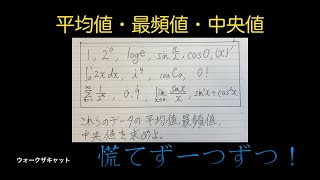 平均値・最頻値・中央値
1, 2⁰, logₑe, sin π/2, cos0, (x)′
∫₀¹2xdx, i⁴, ₁₀₀C₀, 0!
1/2ⁿ, 0.9̇, lim sinx/x, sin²x+cos²x
これらのデータの平均値,最頻値,
中央値を求めよ。
ウォークザキャット
慌てずーつずつ！